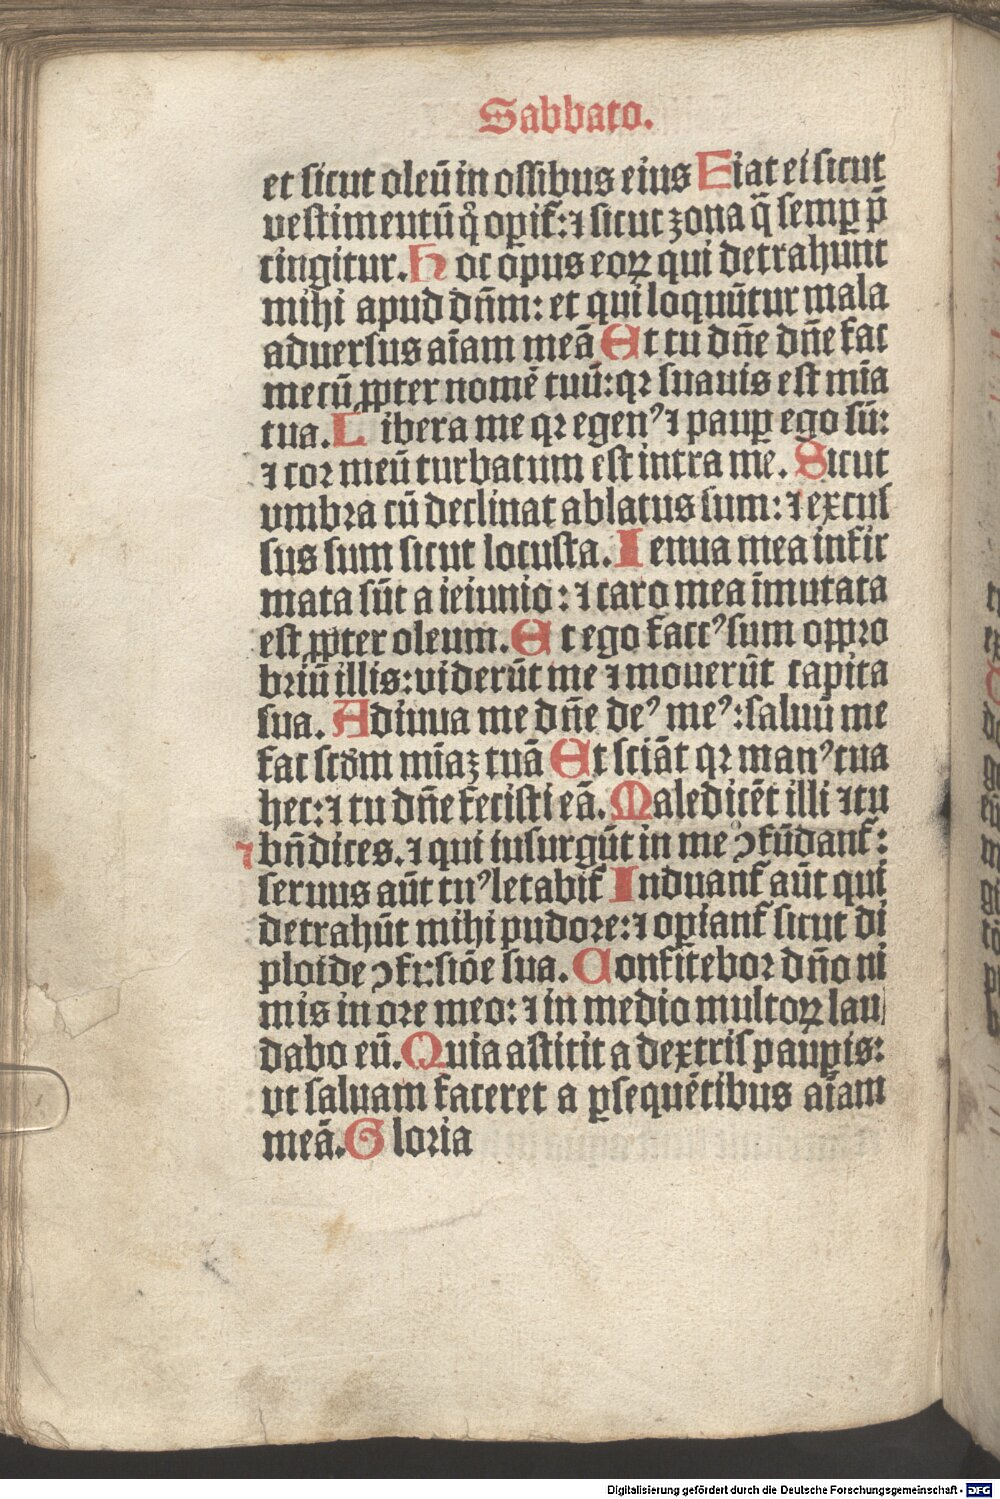 Sabbato.
et sicut oleū in ossibus eius Fiat ei sicut
vestimentū q̊ opit᷑: ⁊ sicut zona q̄ semp̲ p̄
cingitur. Hoc opus eoꝝ qui detrahunt
mihi apud dn̄m: et qui loquūtur mala
aduersus aīam meā Et tu dn̄e dn̄e fac
mecū ꝓpter nomē tuū: qꝛ suauis est mīa
tua. Libera me qꝛ egenꝰ ⁊ paup̲ ego sū:
⁊ coꝛ meū turbatum est intra me. Sicut
vmbꝛa cū declinat ablatus sum: ⁊ excus
sus sum sicut locusta. Ienua mea infir
mata sūt a ieiunio: ⁊ caro mea īmutata
est ꝓpter oleum. Et ego factꝰ sum oppꝛo
bꝛiū illis: viderūt me ⁊ mouerūt capita
sua. Adiuua me dn̄e deꝰ meꝰ: saluū me
fac scd̄m mīaꝫ tuā Et sciāt qꝛ manꝰ tua
hec: ⁊ tu dn̄e fecisti eā. Maledicēt illi ⁊ tu
bn̄dices. ⁊ qui insurgūt in me ↄfūdant᷑:
seruus aūt tuꝰ letabit᷑ Induant᷑ aūt qui
detrahūt mihi pudoꝛe: ⁊ op̲iant᷑ sicut di
ploide ↄfusiōe sua. Confitebor dn̄o ni
mis in oꝛe meo: ⁊ in medio multoꝝ lau
dabo eū. Quia astitit a dextris paup̲is:
vt saluam faceret a ꝑsequētibus aīam
meā. Gloria
Digitalisierung gefördert durch die Deutsche Forschungsgemeinschaft - DFG